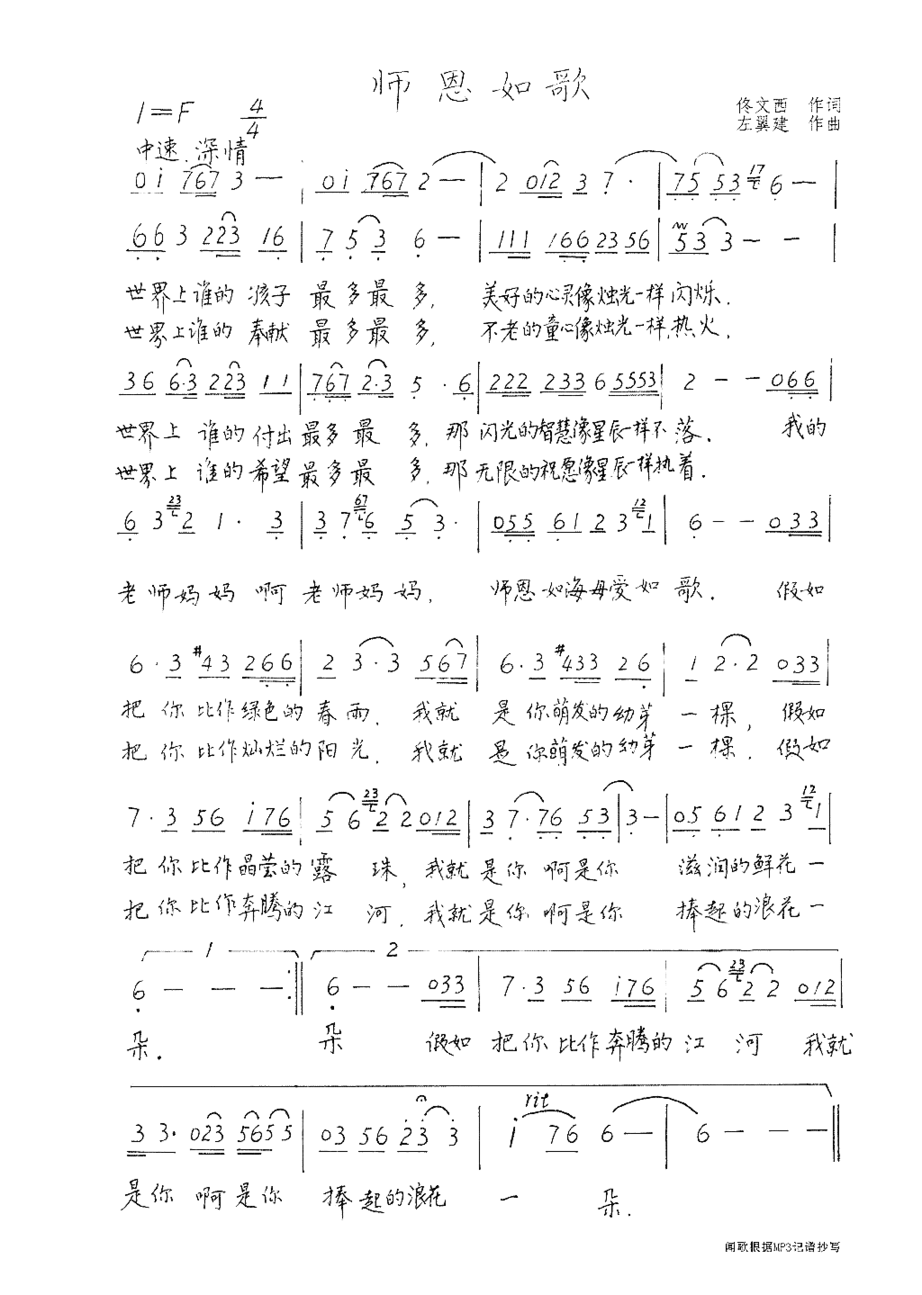 师恩如歌
1=F 4/4
佟文西 作词
左翼建 作曲
中速 深情
0i 767 3 — | 0i 767 2 — | 2 012 3 7 · | 75 53 17 6 — |
66 3 223 16 | 7 5 3 6 — | 111 166 23 56 | 53 3 — — |
世界上谁的孩子 最多最多, 美好的心灵像烛光一样闪烁.
世界上谁的奉献 最多最多, 不老的童心像烛光一样,热火.
36 6·3 223 11 | 767 2·3 5 · 6 | 222 233 6 5553 | 2 — — 066 |
世界上 谁的付出最多最 多,那 闪光的智慧像星辰一样不落. 我的
世界上 谁的希望最多最 多,那 无限的祝愿像星辰一样执着.
6 3 23 2 1 · 3 | 3 7 67 6 5 3 · | 055 61 2 3 12 1 | 6 — — 033 |
老师妈妈 啊 老师妈妈, 师恩如海母爱如 歌. 假如
6·3 #43 266 | 2 3·3 567 | 6·3 #433 26 | 1 2·2 033 |
把你比作绿色的春雨. 我就 是你萌发的幼芽 一棵, 假如
把你比作灿烂的阳光. 我就 是你萌发的幼芽 一棵, 假如
7·3 56 i76 | 5 6 23 2 2 012 | 3 7·76 53 | 3 — | 05 61 2 3 12 1 |
把你比作晶莹的露 珠,我就是你 啊是你 滋润的鲜花一
把你比作奔腾的江 河.我就是你 啊是你 捧起的浪花一
1 2
6 — — — :‖ 6 — — 033 | 7·3 56 i76 | 5 6 23 2 2 012 |
朵. 朵 假如 把你比作奔腾的江 河 我就
rit
3 3· 023 5655 | 03 56 2 3 3 | i 76 6 — | 6 — — — ‖
是你 啊是你 捧起的浪花 一 朵.
闻歌根据MP3记谱抄写